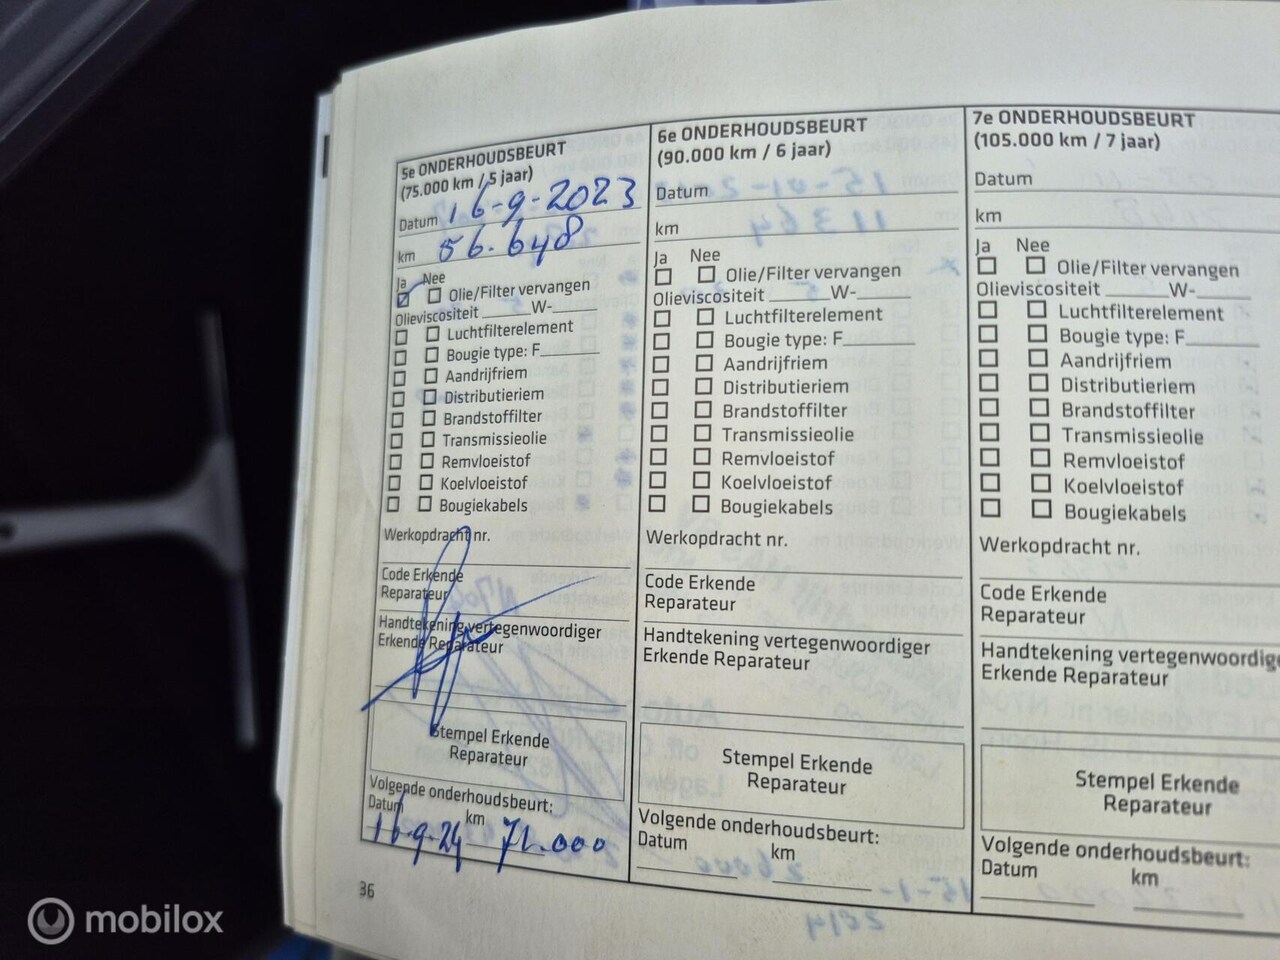 5e ONDERHOUDSBEURT
(75.000 km / 5 jaar)
Datum 16-9-2023
km 56.648
Ja Nee
Olie/Filter vervangen
Olieviscositeit W-
Luchtfilterelement
Bougie type: F
Aandrijfriem
Distributieriem
Brandstoffilter
Transmissieolie
Remvloeistof
Koelvloeistof
Bougiekabels
Werkopdracht nr.
Code Erkende
Reparateur
Handtekening vertegenwoordiger
Erkende Reparateur
Stempel Erkende
Reparateur
Volgende onderhoudsbeurt:
Datum km
16-9-24 71.000
36
6e ONDERHOUDSBEURT
(90.000 km / 6 jaar)
Datum
km
Ja Nee
Olie/Filter vervangen
Olieviscositeit W-
Luchtfilterelement
Bougie type: F
Aandrijfriem
Distributieriem
Brandstoffilter
Transmissieolie
Remvloeistof
Koelvloeistof
Bougiekabels
Werkopdracht nr.
Code Erkende
Reparateur
Handtekening vertegenwoordiger
Erkende Reparateur
Stempel Erkende
Reparateur
Volgende onderhoudsbeurt:
Datum km
7e ONDERHOUDSBEURT
(105.000 km / 7 jaar)
Datum
km
Ja Nee
Olie/Filter vervangen
Olieviscositeit W-
Luchtfilterelement
Bougie type: F
Aandrijfriem
Distributieriem
Brandstoffilter
Transmissieolie
Remvloeistof
Koelvloeistof
Bougiekabels
Werkopdracht nr.
Code Erkende
Reparateur
Handtekening vertegenwoordige
Erkende Reparateur
Stempel Erkende
Reparateur
Volgende onderhoudsbeurt:
Datum km
mobilox